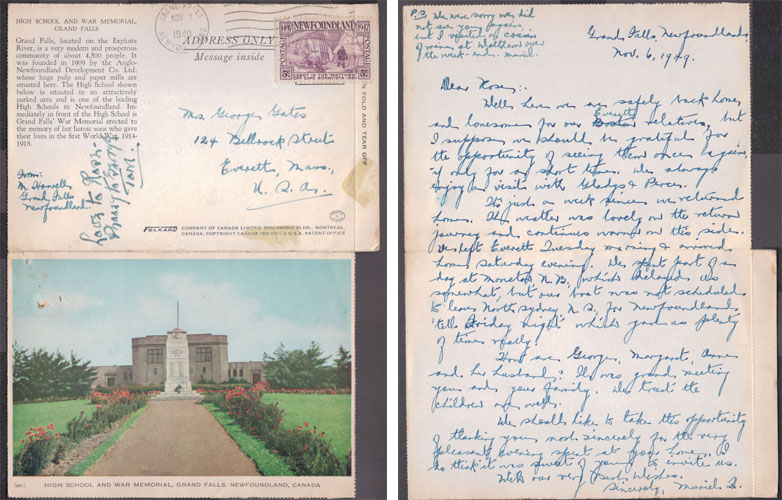 HIGH SCHOOL AND WAR MEMORIAL,
GRAND FALLS
Grand Falls, located on the Exploits
River, is a very modern and prosperous
community of about 4,500 people. It
was founded in 1909 by the Anglo-
Newfoundland Development Co. Ltd.
whose huge pulp and paper mills are
situated here. The High School shown
below is situated in an attractively
parked area and is one of the leading
High Schools in Newfoundland. Im-
mediately in front of the High School is
Grand Falls' War Memorial erected to
the memory of her heroic sons who gave
their lives in the first World War, 1914-
1918.
From:
M.
Grand Falls
Newfoundland
Love to
GRAND FALLS
NOV 7
1949
1497 NEWFOUNDLAND 1947
POSTAGE
POSTAGE
5¢
5¢
ADDRESS ONLY
Message inside
Mrs George Gates
124 Bellrock Street
Everett, Mass,
U.S.A.
FOLD AND TEAR OFF
FOLKARD COMPANY OF CANADA LIMITED DRUMMOND BLDG., MONTREAL,
CANADA, COPYRIGHT CANADA U.S.A. PATENT OFFICE
HIGH SCHOOL AND WAR MEMORIAL, GRAND FALLS, NEWFOUNDLAND, CANADA
P.S We were sorry we did
not see you again,
but I visited a cousin
of mine at Waltham over
the week-end. Muriel.
Grand Falls, Newfoundland
Nov. 6, 1949.
Dear Rose,:
Well here we are safely back home
and lonesome for our Everett relatives, but
I suppose we should be grateful for
the opportunity of seeing them once again,
if only for a short time. We always
enjoy a visit with Gladys & Perce.
It's just a week since we returned
home. The weather was lovely on the return
journey and continues warm on this side.
We left Everett Tuesday morning & arrived
home Saturday evening. We spent part of a
day at Moncton, N.B., which delayed us
somewhat, but our boat was not scheduled
to leave North Sydney, N.S, for Newfoundland,
'till Friday night which gave us plenty
of time really.
How are George, Margaret, Anne
and her husband? It was grand meeting
you and your family. We trust the
children are well.
We should like to take this opportunity
of thanking you most sincerely for the very
pleasant evening spent at your home,
think it was sweet of you to invite us.
With our very Best Wishes.
Sincerely, Muriel